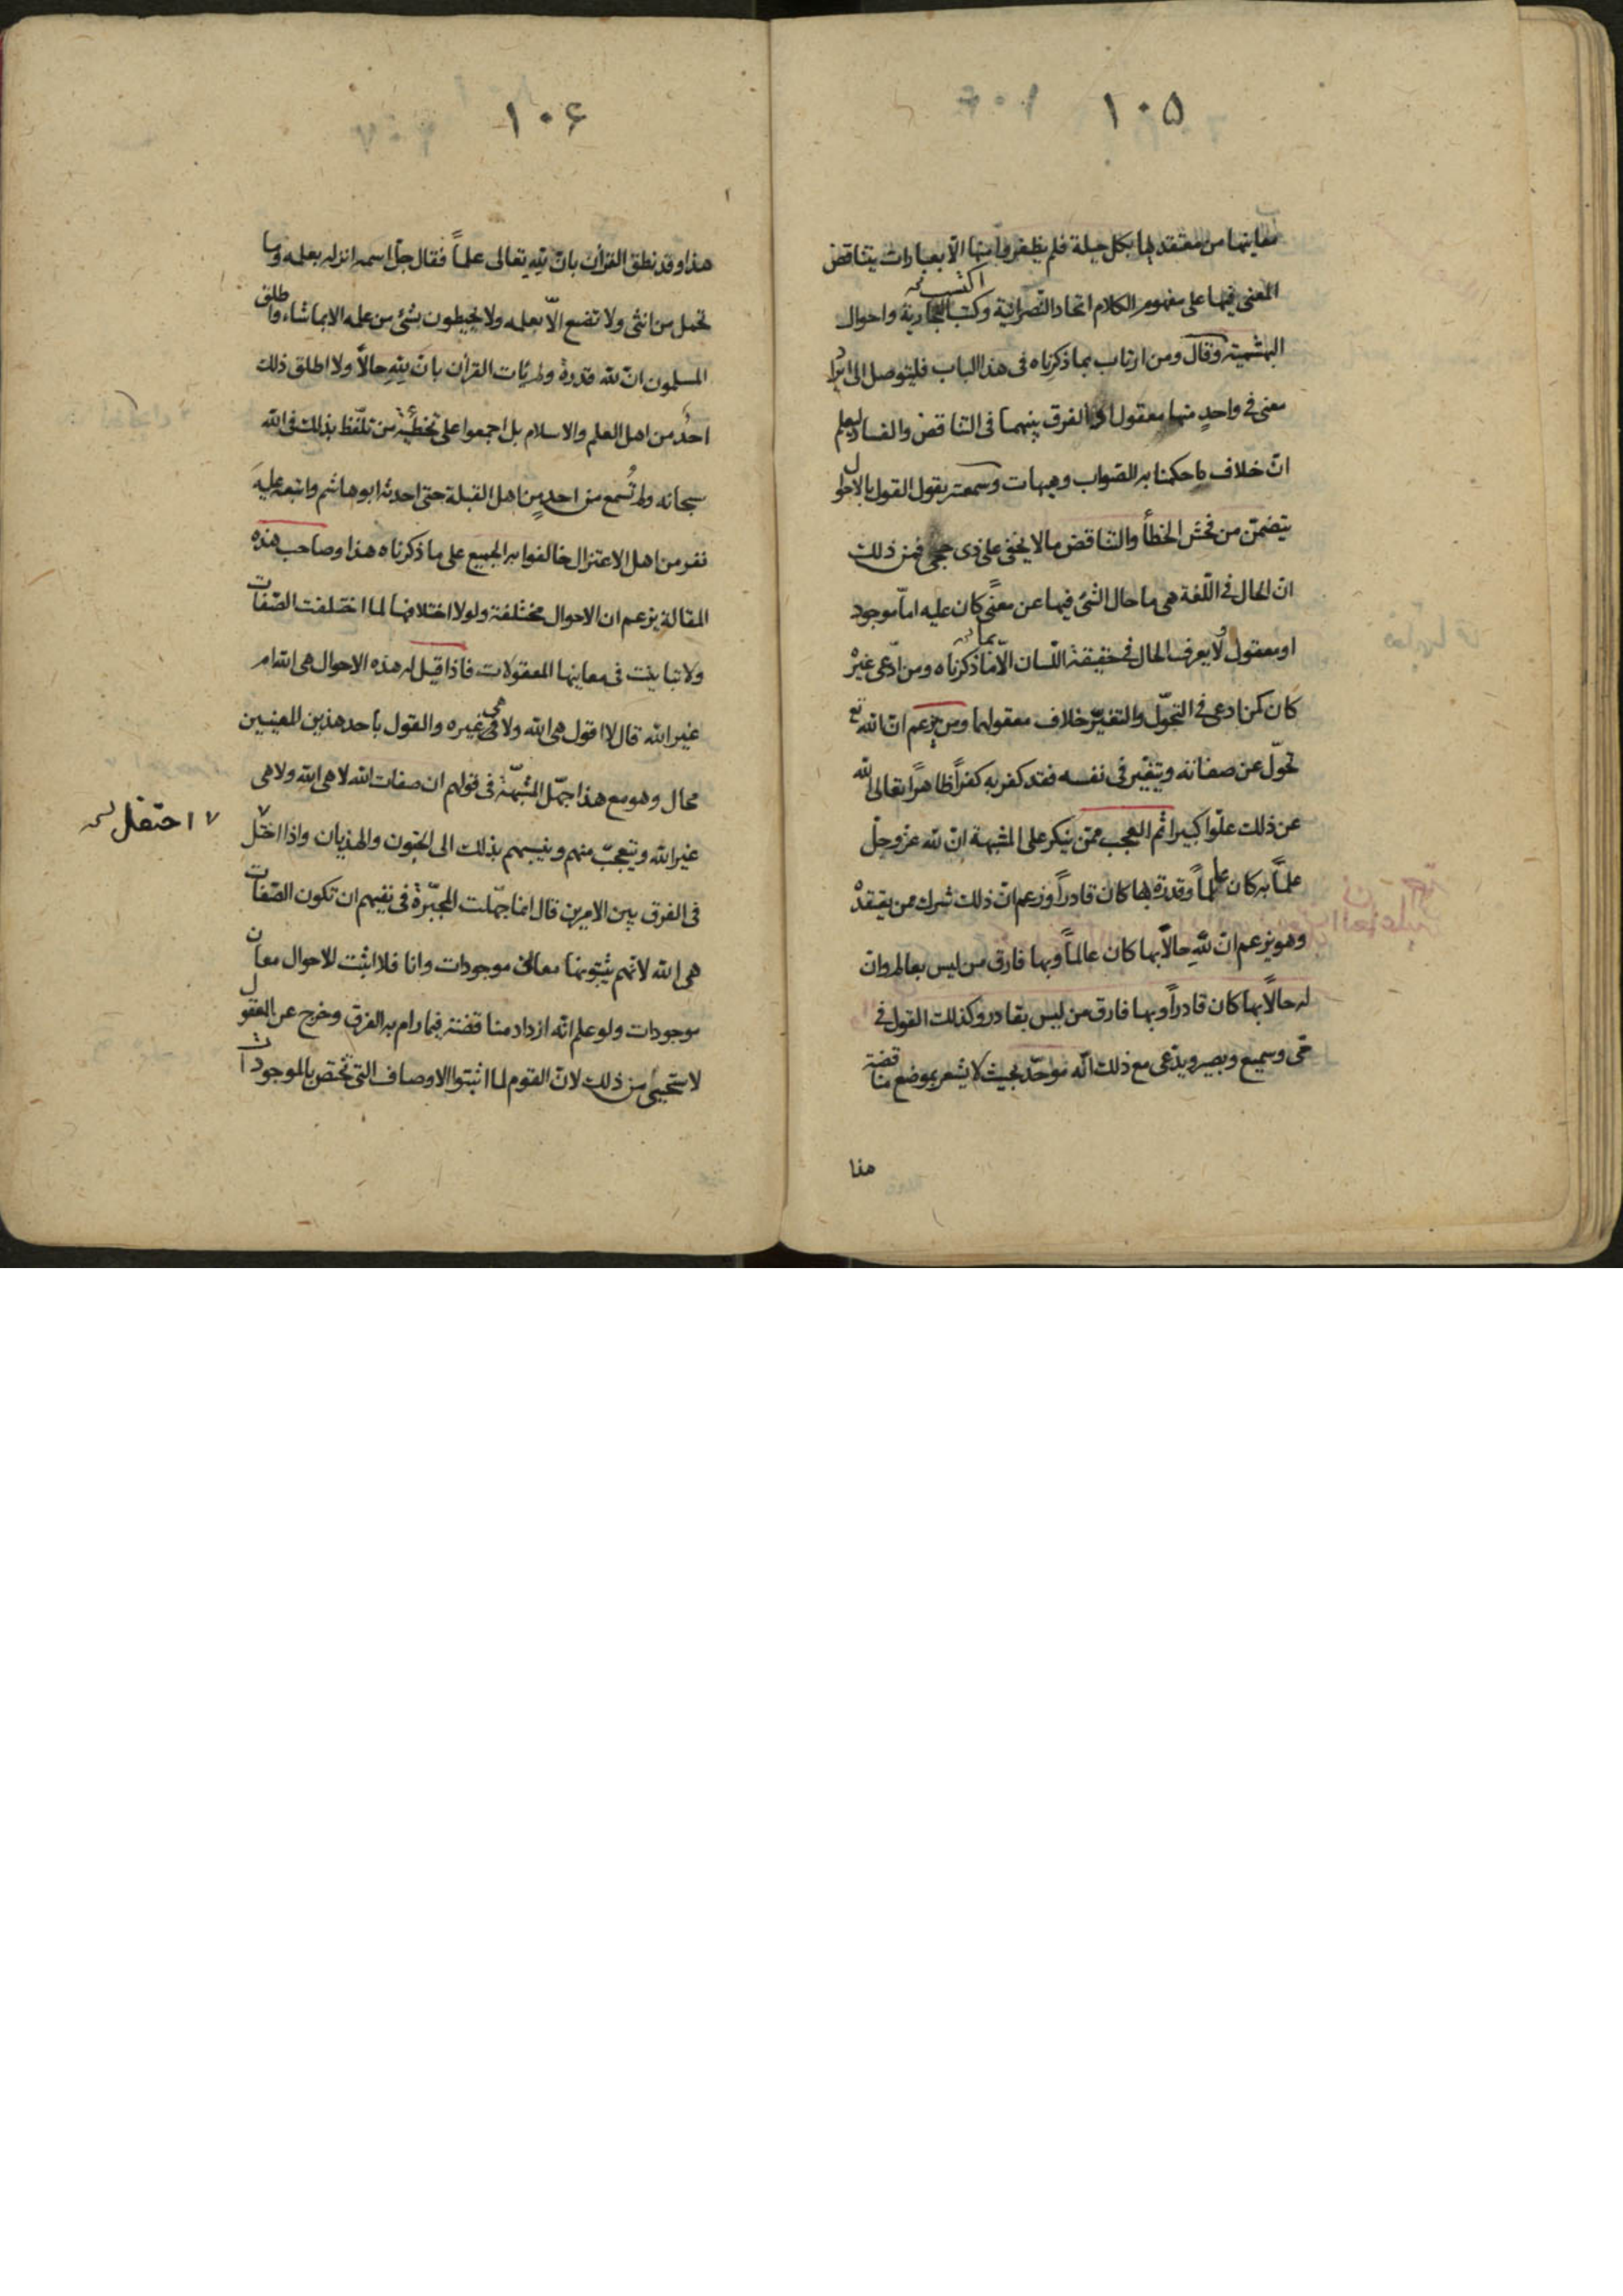 ١٠٥
معانيها من معتقديها بكل حيلة فلم يظفروا منها الّا بعبارات يتناقض
المعنى فيها على مفهوم الكلام اتحاد النّصرانيّة وكتب النجارية واحوال
اكتسب
البهشمية وقال ومن ارتاب بما ذكرناه في هذا الباب فليتوصل الى ايراد
معنى في واحدٍ منها معقول او الفرق بينهما في التناقض والفساد ليعلم
انّ خلاف ما حكمنا به الصّواب وهيهات وسمعته يقول القول بالاحوال
يتضمّن من فحش الخطأ والتناقض ما لا يخفى على ذي حجى فمن ذلك
انّ الحال في اللّغة هي ما حال الشئ فيها عن معنًى كان عليه امّا موجود
او معقول ولا يعرف الحال في حقيقة اللّسان الّا ما ذكرناه ومن ادّعى غيره
بما
كان كمن ادعى في التحوّل والتغيّر خلاف معقولهما ومن زعم انّ الله تع
تحوّل عن صفاته ويتغيّر في نفسه فقد كفر به كفراً ظاهراً تعالى الله
عن ذلك علوّا كبيرا ثم العجب ممّن ينكر على المشبهة انّ لله عزّ وجلّ
علمًا به كان عالماً وقدرة بها كان قادراً وزعم انّ ذلك شرك ممن يعتقده
وهو يزعم انّ للهِ حالاً بها كان عالماً وبها فارق من ليس بعالم وانّ
له حالاً بها كان قادراً وبها فارق من ليس بقادر وكذلك القول في
حى وسميع وبصير ويدّعى مع ذلك انّه موحّد بحيث لا يشعر بموضع مناقضة
هذا
١٠۶
هذا وقد نطق القرآن بانّ للهِ تعالى علماً فقال جلّ اسمه انزله بعلمه وما
تحمل من انثى ولا تضع الاّ بعلمه ولا يحيطون بشئ من علمه الا بما شاء واطلق
المسلمون انّ لله قدرة ولم يأت القرآن بانّ للهِ حالاً ولا اطلق ذلك
احدُ من اهل العلم والاسلام بل اجمعوا على تخطئة من تلّفظ بذلك في الله
سبحانه ولم تُسمع من احدٍ من اهل القبلة حتى احدثه ابوهاشم واتبعه عليه
نفر من اهل الاعتزال خالفوا به الجميع على ما ذكرناه هذا وصاحب هذه
المقالة يزعم ان الاحوال مختلفة ولولا اختلافها لما اختلفت الصّفات
ولا تباينت في معانيها المعقولات فاذا قيل له هذه الاحوال هي الله ام
غير الله قال لا اقول هي الله ولا هي غيره والقول باحد هذين المعنيين
محال وهو مع هذا جهّل المشبّهة في قولهم ان صفات الله لا هي الله ولا هي
غير الله ويتعجبّ منهم وينسبهم بذلك الى الجنون والهذيان واذا اختل
٧ احتفل
في الفرق بين الامرين قال انما جهّلت المجبّرة في نفيهم ان تكون الصّفات
هي الله لانهم يثبتونها معانى موجودات وانا فلا اثبت للاحوال معان
موجودات ولو علم انّه ازداد مناقضة فيما رام به الفرق وخرج عن العقول
لاستحيى من ذلك لانّ القوم لما اثبتوا الاوصاف التى تختص بالموجودات